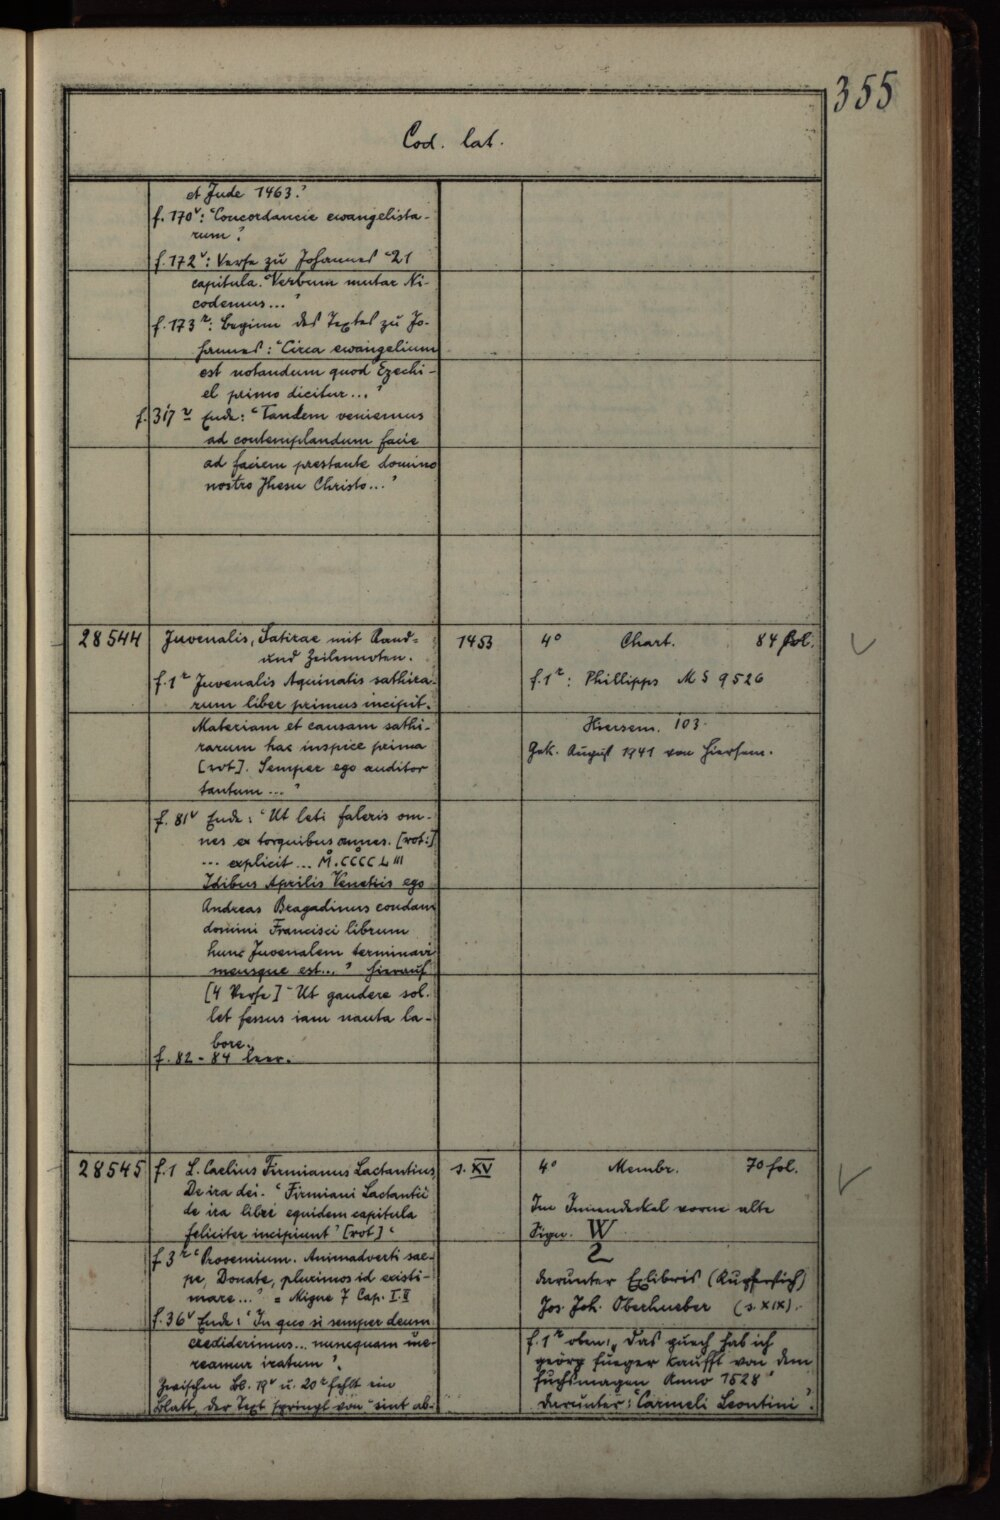 355
Cod. lat.
et Jude 1463.'
f. 170v: 'Concordancie ewangelista-
rum'.
f. 172v: Verse zu Johannes '21
capitula. 'Verbum mutat Ni-
codemus...'
f. 173r: Beginn des Textes zu Jo-
hannes: 'Circa ewangelium
est notandum quod Ezechi-
el primo dicitur...'
f. 317r Ende: 'Tandem veniemus
ad contemplandum facie
ad faciem prestante domino
nostro Jhesu Christo...'
28544 Juvenalis, Satirae mit Rand=
und Zeilennoten.
f. 1r Juvenalis Aquinatis sathira-
rum liber primus incipit.
Materiam et causam sathi-
rarum hac inspice prima
[rot]. Semper ego auditor
tantum...'
f. 81v Ende: 'Ut leti faleris om-
nes ex torquibus omnes. [rot:]
... explicit... M.CCCC L III
Idibus Aprilis Venetiis ego
Andreas Bragadinus condam
domini Francisci librum
hunc Juvenalem terminavi
meusque est...' hierauf
[4 Verse] 'Ut gaudere sol.
let fessus iam nauta la-
bore.
f. 82 - 84 leer.
1453
4° Chart. 84 fol.
f. 1r: Phillipps MS 9526
Hiersem. 103.
Gek. August 1941 von Hiersem.
28545 f. 1 L. Caelius Firmianus Lactantius,
De ira dei. 'Firmiani Lactantii
de ira libri equidem capitula
feliciter incipiunt' [rot]'
f 3r 'Prooemium. Animadverti sae-
pe, Donate, plurimos id existi-
mare...' = Migne 7 Cap. I. II
f. 36v Ende: 'In quo si semper deum
crediderimus... nunequam ue-
reamur iratum'.
Zwischen Bl. 19v u. 20r fehlt ein
Blatt, der Text springt von 'sint ab-
s. XV
4° Membr. 70 fol.
Im Innendeckel vorne alte
Sign. W
2
darunter Exlibris (Kupferstich)
Jos. Joh. Oberhueber (s. XIX).
f. 1r oben: „Das puech hab ich
geörg fueger kaufft von dem
fuchsmagen Anno 1528"
darunter: 'Carmeli Leontini'.